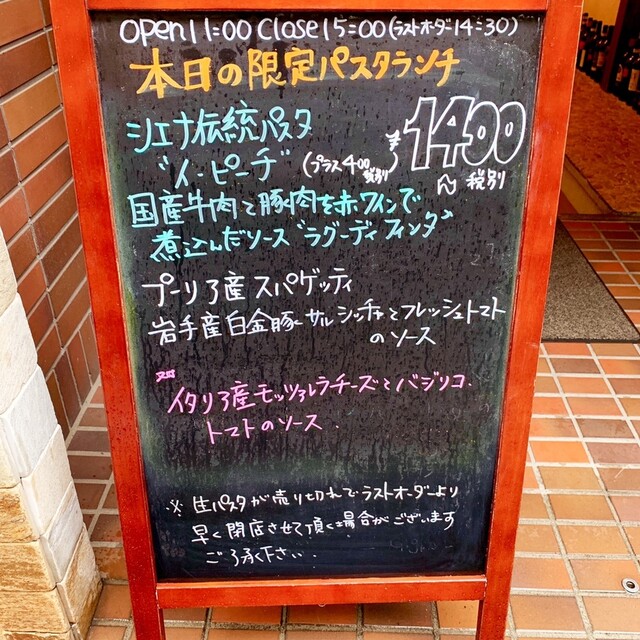 open 11:00 Close 15:00 (ラストオーダー 14:30)
本日の限定パスタランチ
シエナ伝統パスタ
"イ・ピーチ" (プラス400 税別)
¥1400 税別
国産牛肉と豚肉を赤ワインで
煮込んだソース"ラグーディフィンタ"
プーリア産スパゲッティ
岩手産白金豚サルシッチャとフレッシュトマト
のソース
又は
イタリア産モッツァレラチーズとバジリコ
トマトのソース.
※ 生パスタが売り切れでラストオーダーより
早く閉店させて頂く場合がございます
ご了承下さい.